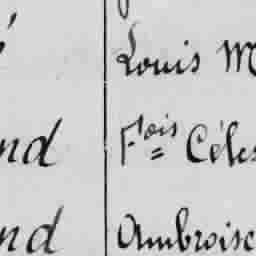 Louis M
nd Fois Céles
nd Ambroise